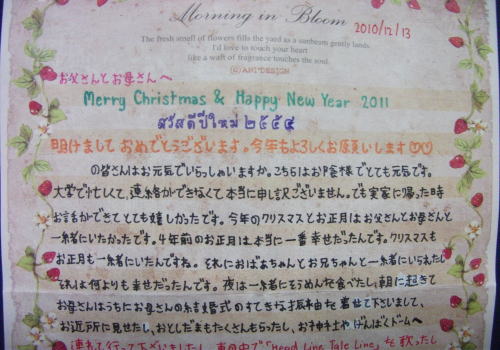 Morning in Bloom
2010/12/13
The fresh smell of flowers fills the yard as a sunbeam gently lands.
I'd love to touch your heart
like a waft of fragrance touches the soul.
お父さんとお母さんへ
Merry Christmas & Happy New Year 2011
สวัสดีปีใหม่ ๒๕๕๔
明けまして おめでとうございます。今年もよろしくお願いします♡♡
の皆さんはお元気でいらっしゃいますか。こちらはお陰様でとても元気です。
大学で忙しくて、連絡ができなくて本当に申し訳ございません。でも実家に帰った時
お話ができてとても嬉しかったです。今年のクリスマスとお正月はお父さんとお母さんと
一緒にいたかったです。4年前のお正月は本当に一番幸せだったんです。クリスマスも
お正月も一緒にいたんですね。それにおばあちゃんとお兄ちゃんと一緒にいられた
それは何よりも幸せだったんです。夜は一緒にそうめんを食べたし、朝に起きて
お母さんはうちにお母さんの結婚式のすてきな振袖を着せて下さいまして、
お近所に見せたし、おとしだまもたくさんもらったし、お神社やげんばくドームへ
連れて行って下さいましたし、車の中で「Head Line Tale Line」を歌ったし